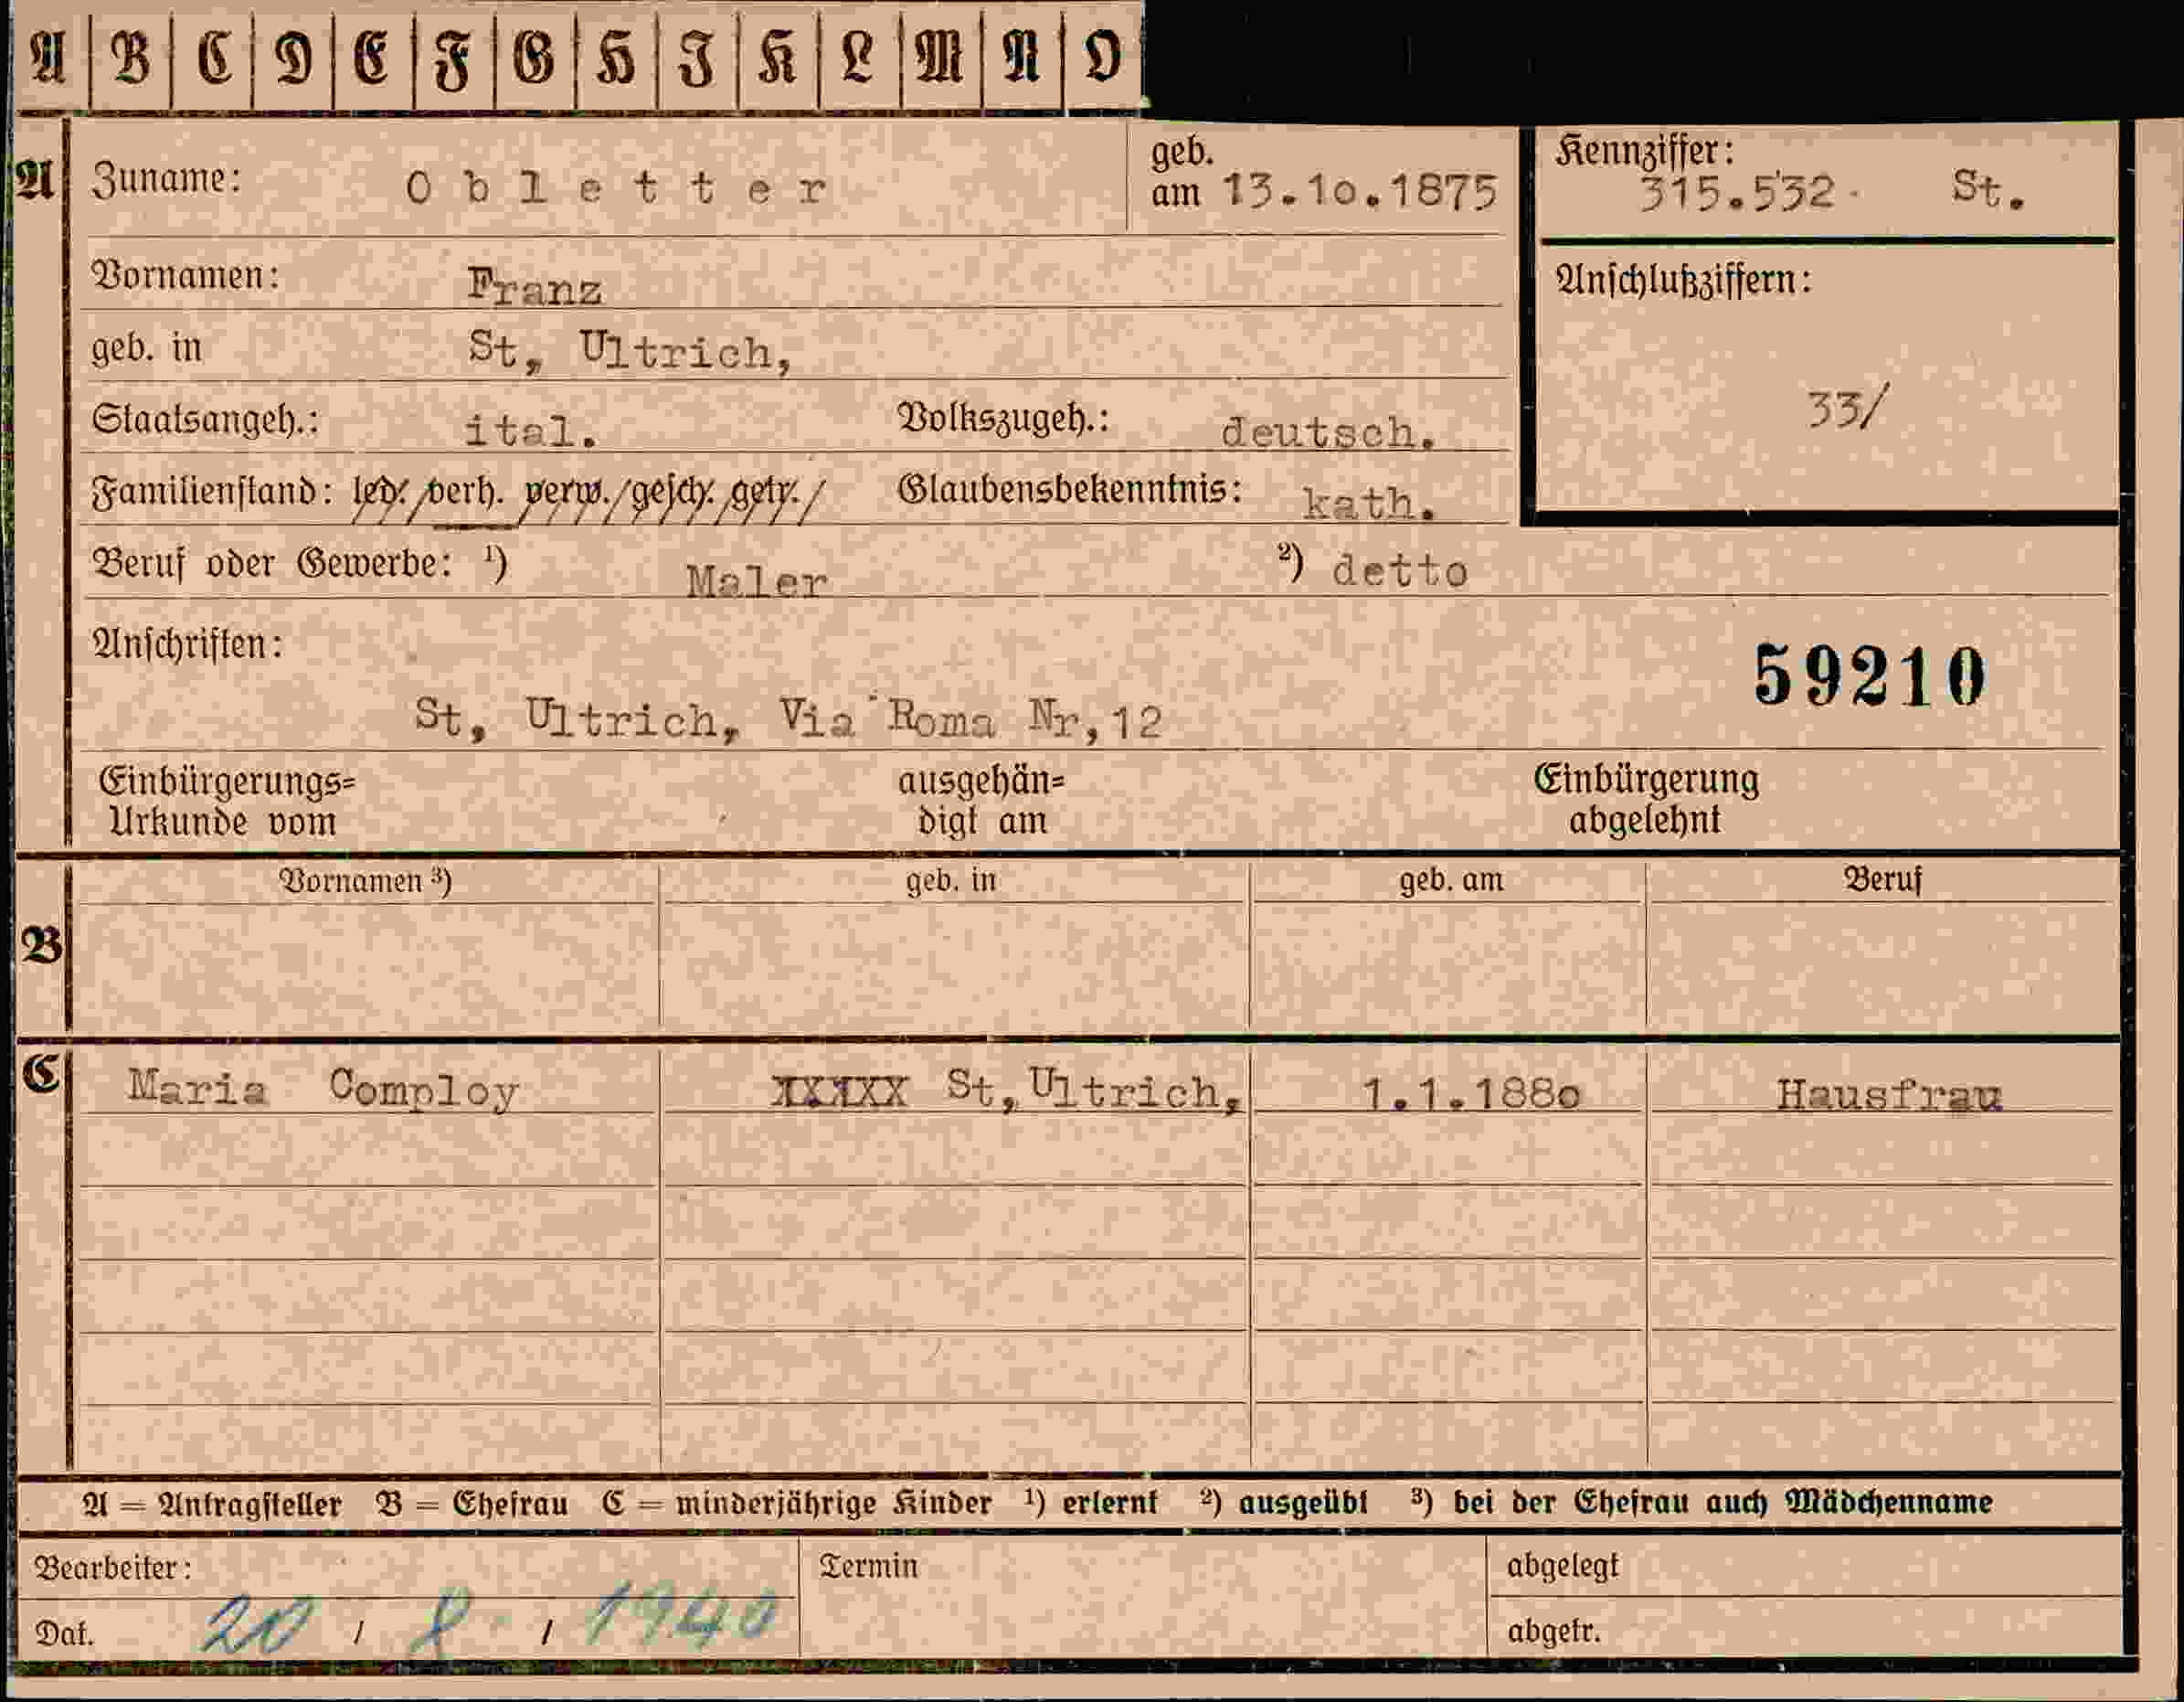 A B C D E F G H I K L M N O
A Zuname: Obletter geb. am 13.10.1875 Kennziffer: 315.532. St.
Vornamen: Franz Anschlußziffern:
geb. in St, Ultrich,
33/
Staatsangeh.: ital. Volkszugeh.: deutsch.
Familienstand: led. / verh. verw. / gesch. getr. / Glaubensbekenntnis: kath.
Beruf oder Gewerbe: ¹) Maler ²) detto
Anschriften:
59210
St, Ultrich, Via Roma Nr,12
Einbürgerungs= ausgehän= Einbürgerung
Urkunde vom digt am abgelehnt
Vornamen ³) geb. in geb. am Beruf
B
C Maria Comploy XXXXX St,Ultrich, 1.1.188o Hausfrau
A = Antragsteller B = Ehefrau C = minderjährige Kinder ¹) erlernt ²) ausgeübt ³) bei der Ehefrau auch Mädchenname
Bearbeiter: Termin abgelegt
Dat. 20 / 8 / 1940 abgetr.